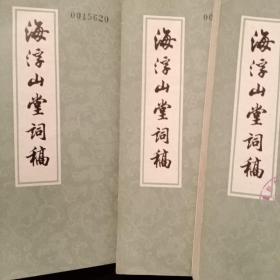 海浮山堂詞稿
0015620
海浮山堂詞稿
海浮山堂詞稿